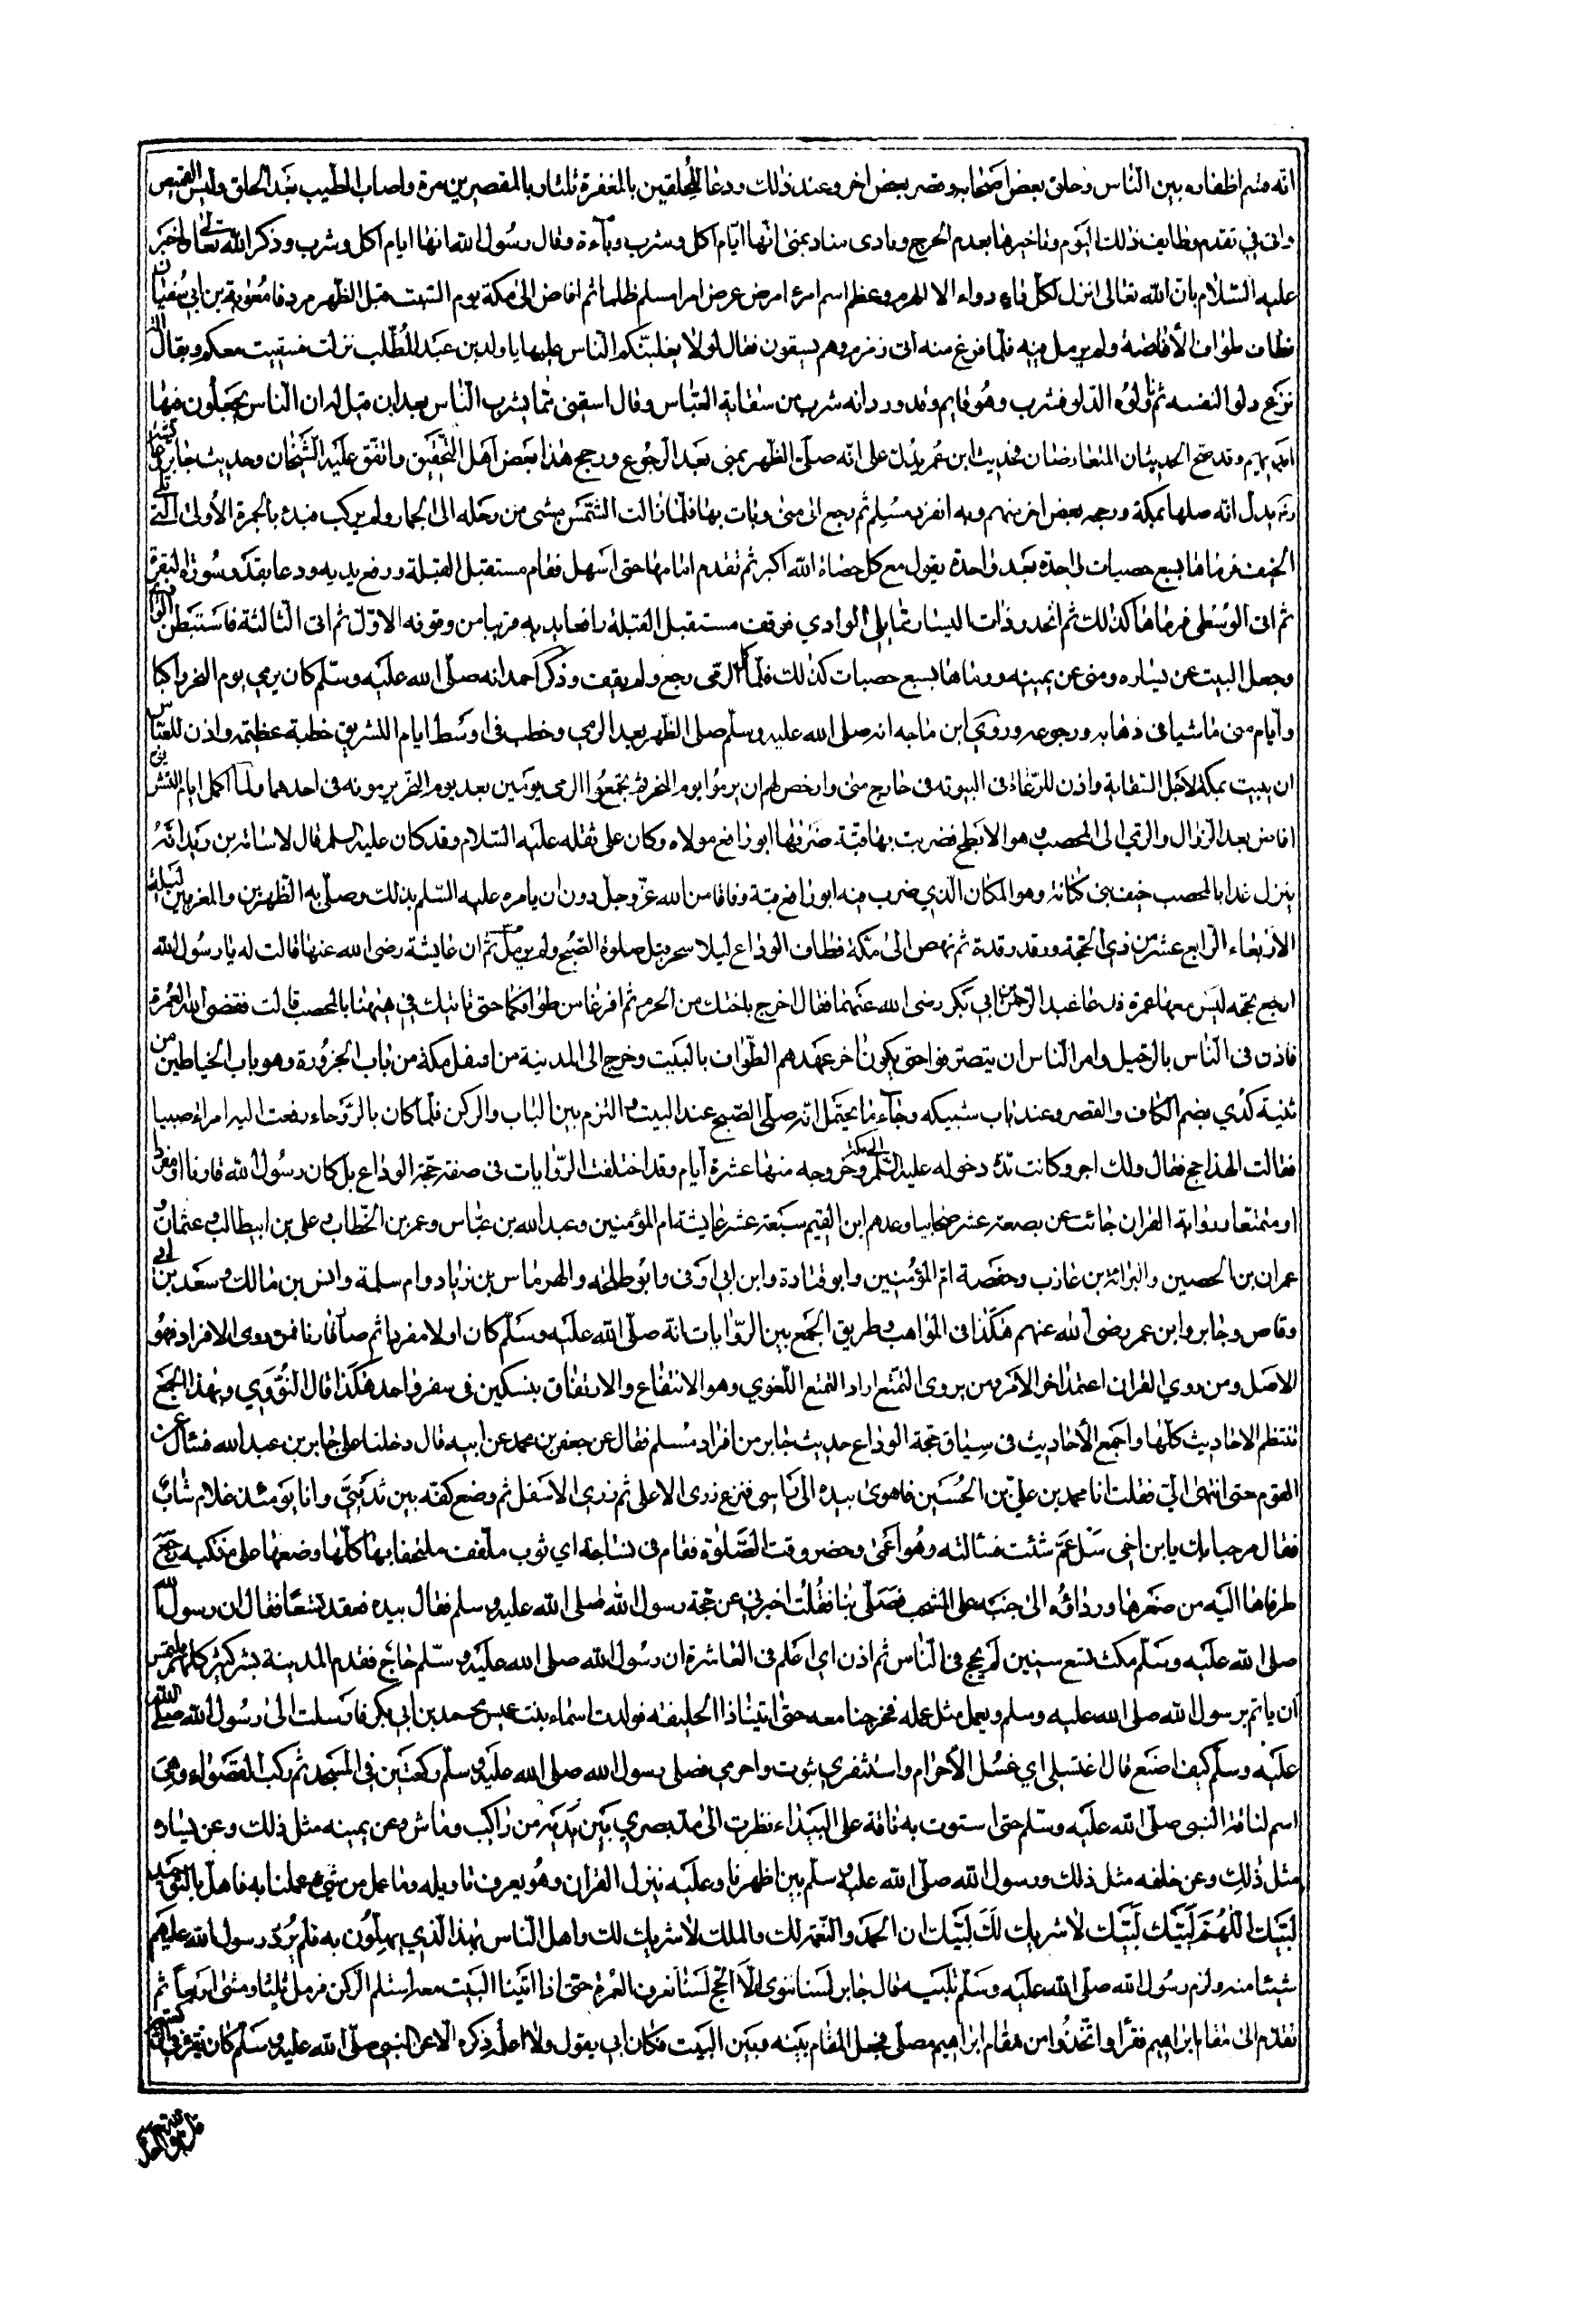 انه قسم اظفاره بين الناس وحلق بعض اصحابه وقصر بعض اخر وعند ذلك ودعا للمحلقين بالمغفرة ثلثا وبالمقصرين مرة واصاب الطيب بعد الحلق ولبس القميص
واتى في تقدم وظايف ذلك اليوم وتاخيرها بعدم الحرج ونادى مناد بمنى انها ايام اكل وشرب وباءة وقال رسول الله انها ايام اكل وشرب وذكر الله تعالى واخبر
عليه السلام بان الله تعالى انزل لكل داء دواء الا الهرم وعظم اسم امرء امرض عرض امرا مسلم ظلما ثم افاض الى مكة يوم السبت قبل الظهر مردفا معوية بن ابي سفيان
فطاف طواف الافاضة ولم يرمل فيه فلما فرغ منه اتى زمزم وهم يسقون فقال لولا يغلبنكم الناس عليها يا ولد بن عبد المطلب نزلت فسقيت معكم ويقال انه
نزع دلوا لنفسه ثم ناولوه الدلو فشرب وهو قايم وقد ورد انه شرب من سقاية العباس وقال اسقني مما يشرب الناس بعد ابن قيل له ان الناس يجعلون فيها
ايديهم وقد صح الحديثان المتعارضان فحديث ابن عمر يدل على انه صلى الظهر بمنى بعد الرجوع ورجح هذا بعض اهل التحقيق واتفق عليه الشيخان وحديث جابر وعايشة
يدل انه صلها بمكة ورجحه بعض اخر منهم وبه انفرد مسلم ثم رجع الى منى وبات بها فلما زالت الشمس مشى من رحله الى الجمار ولم يركب فبدء بالجمرة الاولى التي تلي
الخيف فرماها بسبع حصيات واحدة بعد واحدة يقول مع كل حصاة الله اكبر ثم تقدم امامها حتى اسهل فقام مستقبل القبلة ورفع يديه ودعا بقدر سورة البقرة
ثم اتى الوسطى فرماها كذلك ثم انحدر ذات اليسار مما يلي الوادي فوقف مستقبل القبلة رافعا يديه قريبا من وقوفه الاول ثم اتى الثالثة فاستبطن الوادي
وجعل البيت عن يساره ومنى عن يمينه ورماها بسبع حصيات كذلك فلما اكمل الرمى رجع ولم يقف وذكر احمد انه صلى الله عليه وسلم كان يرمي يوم النحر راكبا
وايام منى ماشيا في ذهابه ورجوعه وروى ابن ماجه انه صلى الله عليه وسلم صلى الظهر بعد الرمي وخطب في اوسط ايام التشريق خطبة عظيمة واذن للعباس
ان يبيت بمكة لاجل السقاية واذن للرعاة في البيوتة في خارج منى وارخص لهم ان يرموا يوم النحر ثم يجمعوا الرمي يومين بعد يوم النحر يرمونه في احدهما ولما اكمل ايام التشريق
افاض بعد الزوال والرمي الى المحصب وهو الابطح فضربت بها قبة ضربها ابو رافع مولاه وكان على ثقله عليه السلام وقد كان عليه السلم قال لاسامة بن زيد انه
ينزل غدا بالمحصب خيف بني كنانة وهو المكان الذي ضرب فيه ابو رافع قبة وفاقا من الله عز وجل دون ان يامره عليه السلم بذلك وصلى به الظهرين والمغربين ليلة
الاربعاء الرابع عشر من ذي الحجة ورقد رقدة ثم نهض الى مكة فطاف الوداع ليلا سحر قبل صلوة الصبح ولم يرمل ثم ان عايشة رضى الله عنها قالت له يا رسول الله
ارجع بحجه ليس معها عمرة فدعا عبد الرحمن بن ابي بكر رضى الله عنهما فقال اخرج باختك من الحرم ثم افرغا من طوافكما حتى تاتيك في هيهنا بالمحصب قالت فقضى الله العمرة
فاذن في الناس بالرحيل وامر الناس ان ينصرفوا حتى يكون اخر عهدهم الطواف بالبيت وخرج الى المدينة من اسفل مكة من باب الحزورة وهو باب الخياطين من
ثنية كدي بضم الكاف والقصر وعند باب شبيكه وجاء ما يحتمل انه صلى الصبح عند البيت والتزم بين الباب والركن فلما كان بالروحاء رفعت اليه امراة صبيا
فقالت الهذا حج فقال ولك اجر وكانت مدة دخوله عليه السلم مكة وخروجه منها عشرة ايام وقد اختلفت الروايات في صفة حجة الوداع بل كان رسول الله قارنا او مفردا
او متمتعا ورواية القران جائت عن بضعة عشر صحابيا وعدهم ابن القيم سبعة عشر عايشة ام المؤمنين وعبد الله بن عباس وعمر بن الخطاب وعلى بن ابيطالب وعثمان و
عمران بن الحصين والبراء بن عازب وحفصة ام المؤمنين وابو قتادة وابن ابي اوفى وابو طلحة والهرماس بن زياد وام سلمة وانس بن مالك وسعد بن ابي
وقاص وجابر وابن عمر رضى الله عنهم هكذا في المواهب وطريق الجمع بين الروايات انه صلى الله عليه وسلم كان اولا مفردا ثم صار قارنا فمن روى الافراد فهو
الاصل ومن روي القران اعتمد اخر الامر ومن يروى التمتع اراد التمتع اللغوي وهو الانتفاع والارتفاق بنسكين في سفر واحد هكذا قال النووي وبهذا الجمع
تنتظم الاحاديث كلها واجمع الاحاديث في سياق حجة الوداع حديث جابر من افراد مسلم فقال عن جعفر بن محمد عن ابيه قال دخلنا على جابر بن عبد الله فسال عن
القوم حتى انتهى الي فقلت انا محمد بن علي بن الحسين فاهوى بيده الى راسى فنزع زرى الاعلى ثم زري الاسفل ثم وضع كفه بين ثديي وانا يومئذ غلام شاب
فقال مرحبا بك يا بن اخى سل عم شئت فسالته وهو اعمى وحضر وقت الصلوة فقام في نساجة اي ثوب ملفف ملتحفا بها كلها وضعها على منكبيه رجع
طرفاها اليه من صغرها ورداؤه الى جنبه على المشجب فصلى بنا فقلت اخبرني عن حجة رسول الله صلى الله عليه وسلم فقال بيده فعقد تسعا فقال ان رسول الله
صلى الله عليه وسلم مكث تسع سنين لم يحج في الناس ثم اذن اي اعلم في العاشرة ان رسول الله صلى الله عليه وسلم حاج فقدم المدينة بشر كثير كلهم يلتمس
ان ياتم برسول الله صلى الله عليه وسلم ويعمل مثل عمله فخرجنا معه حتى اتينا ذا الحليفة فولدت اسماء بنت عميس محمد بن ابي بكر فارسلت الى رسول الله صلى الله
عليه وسلم كيف اصنع قال اغتسلي اي غسل الاحرام واستثفري بثوب واحرمي فصلى رسول الله صلى الله عليه وسلم ركعتين في المسجد ثم ركب القصواء وهي
اسم لناقة النبي صلى الله عليه وسلم حتى استوت به ناقة على البيداء نظرت الى مد بصري بين يديه من راكب وماش وعن يمينه مثل ذلك وعن يساره
مثل ذلك وعن خلفه مثل ذلك ورسول الله صلى الله عليه وسلم بين اظهرنا وعليه ينزل القران وهو يعرف تاويله وما عمل من شيء عملنا به فاهل بالتوحيد
لبيك اللهم لبيك لبيك لا شريك لك لبيك ان الحمد والنعمة لك والملك لا شريك لك واهل الناس بهذا الذي يهلون به فلم يرد رسول الله عليهم
شيئا منه ولزم رسول الله صلى الله عليه وسلم تلبيه قال جابر لسنا ننوى الا الحج لسنا نعرف العمرة حتى اذا اتينا البيت معه استلم الركن فرمل ثلثا ومشى اربعا ثم
تقدم الى مقام ابراهيم فقرا واتخذوا من مقام ابراهيم مصلى فجعل المقام بينه وبين البيت فكان ابي يقول ولا اعلم ذكره الا عن النبي صلى الله عليه وسلم كان يقرء في الركعتين
قل هو الله